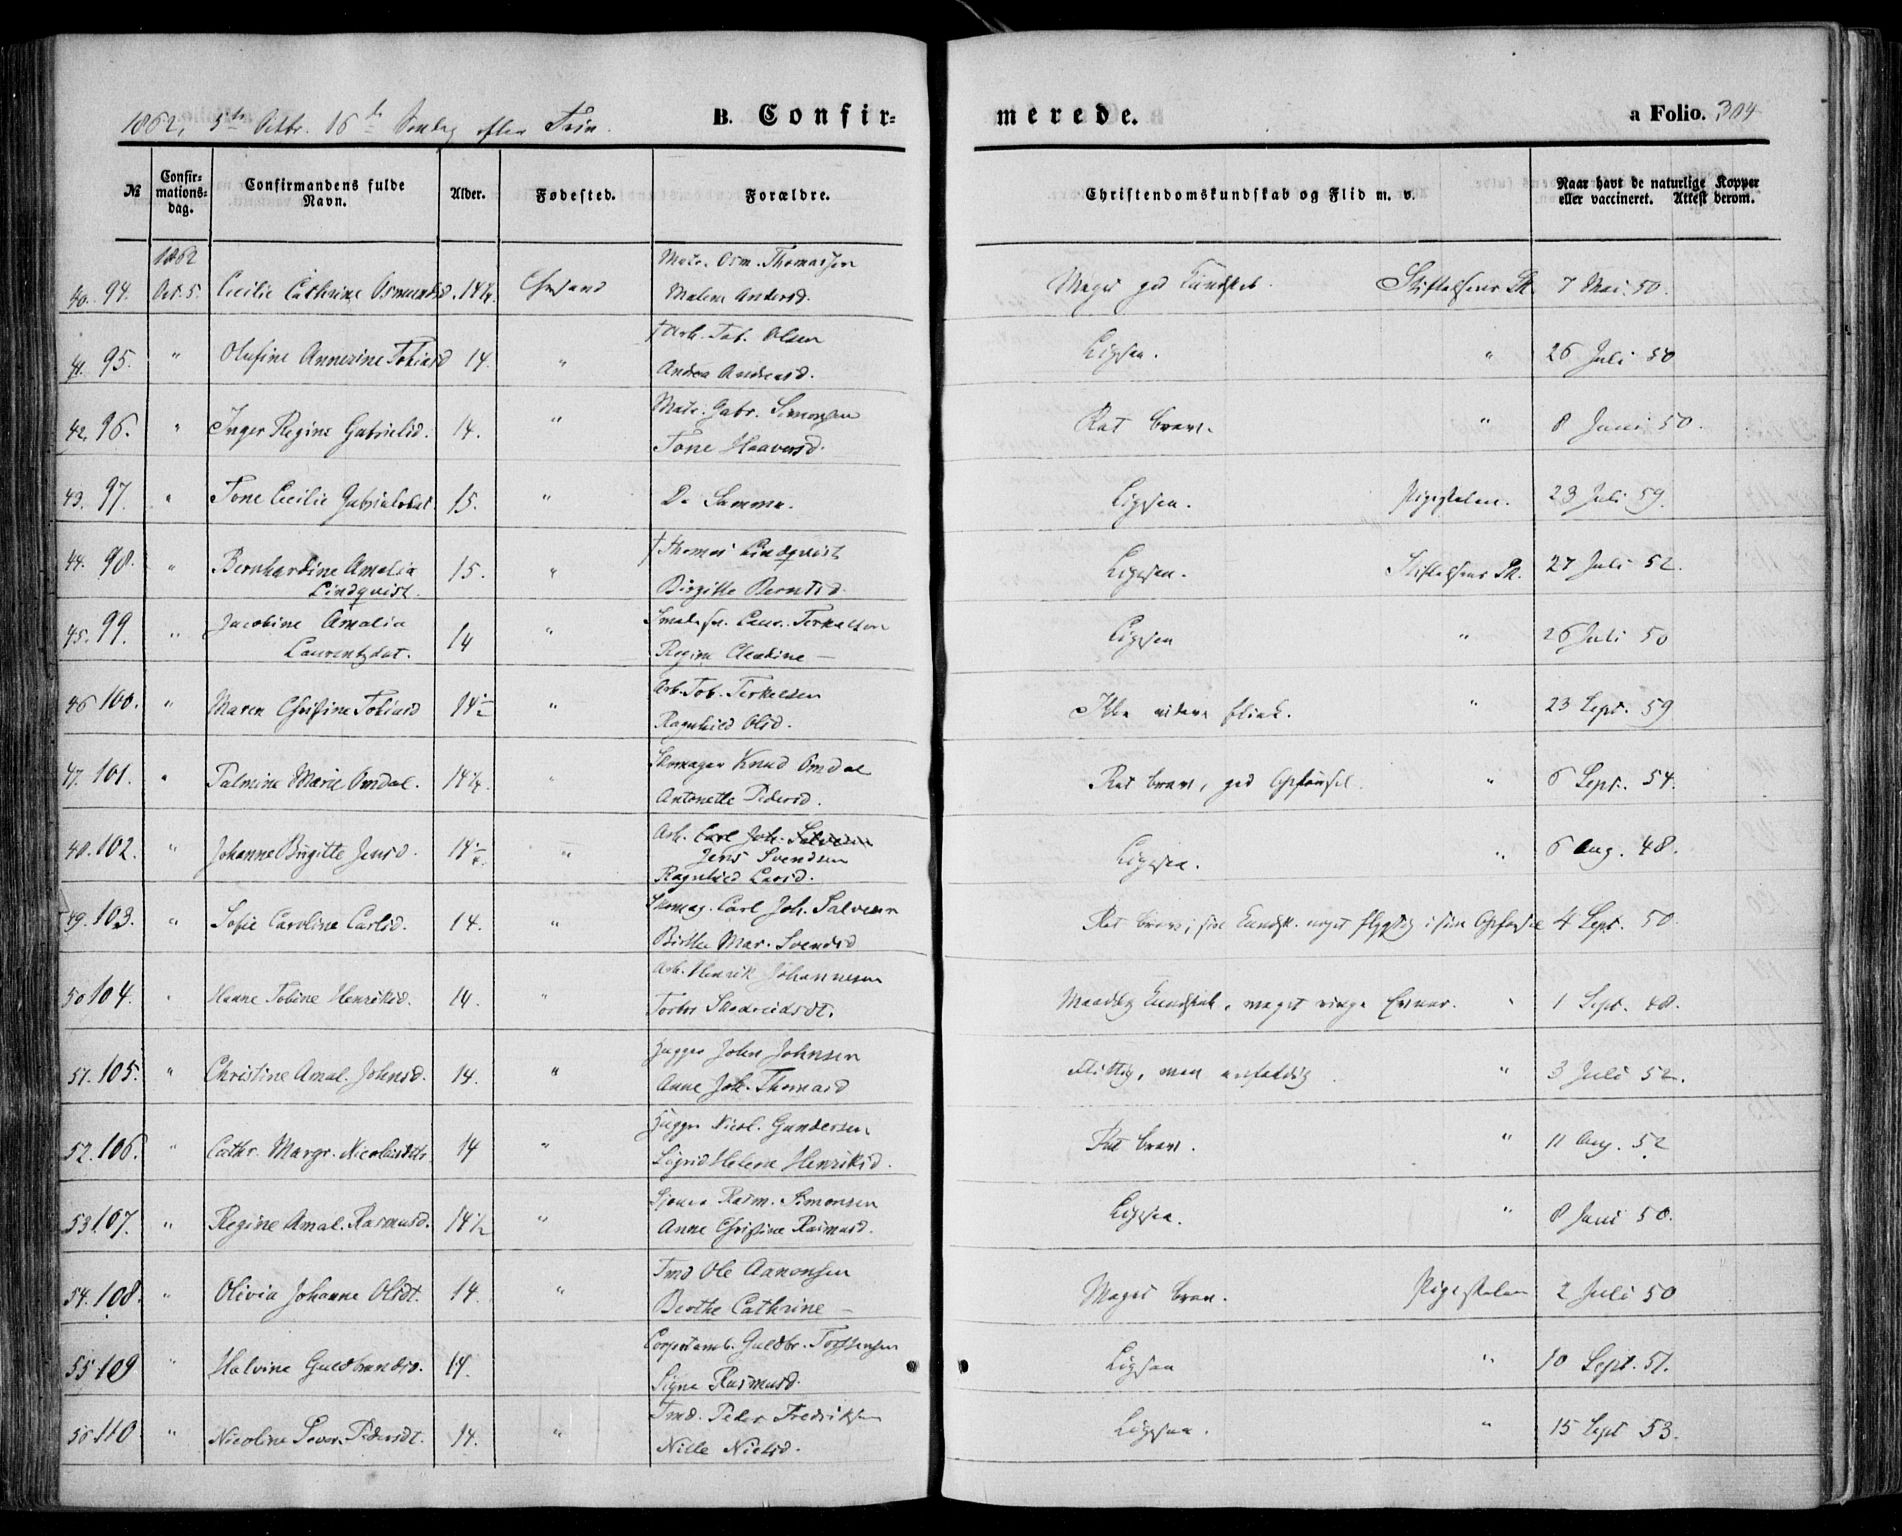 1862, 5te Octbr. 16de Søndag efter Trin.
B. Confir-
merede.
a Folio. 304
№
Confir-
mations-
dag.
Confirmandens fulde
Navn.
Alder.
Fødested.
Forældre.
Christendomskundskab og Flid m. v.
Naar havt de naturlige Kopper
eller vaccineret. Attest derom.
1862
Matr. Osm. Thomassen
40. 94. Oct. 5. Cecilie Cathrine Osmundsd. 14¼. Chrsand Malene Andersd. Meget god Kundskab. Stiftelsens Sk. 7 Mai. 50.
† Arb. Tob. Olsen
41. 95. " Olufine Annezine Tobiasd 14. " Andrea Andreasd. Ligesaa. " 26 Juli 50
Matr. Gabr. Simonsen
42. 96. " Inger Regine Gabrielsd. 14. " Tone Haaversd. Ret brav. " 8 Juni 50.
43. 97. " Tone Cecilie Gabrielsdat 15. " De Samme. Ligesaa. Pigeskolen. 23 Juli 59.
† Thomas Lindqvist
44. 98. " Bernhardine Amalia 15. " Ligesaa. Stiftelsens Sk. 27 Juli 52.
Lindqvist. Birgitte Berntsd.
45. 99. " Jacobine Amalia 14 " Laur. Terkelsen Ligesaa " 26 Juli 50
Laurentzdat. Regine Claudine —
Arb. Tob. Terkelsen
46 100. " Maren Christine Tobiasd 14½ " Ragnhild Olsd. Ikke videre flink. " 23 Sept. 59
Skomager Knud Omdal
47. 101. " Talmine Marie Omdal. 14¼. " Antonette Pedersd. Ret brav, god Opførsel. " 6 Sept. 54.
Arb. Carl Joh. Salvesen
48. 102. " Johanne Birgitte Jensd. 14¼. " Jens Svendsen Ligesaa. " 6 Aug. 48.
Ragnhild Larsd.
Skomag. Carl Joh. Salvesen
49. 103. " Sofie Caroline Carlsd. 14. " Birthe Mar. Svendsd Ret brav i sin Kundsk. noget flygtig i sin Opførsel 4 Sept. 50.
Arb. Henrik Johannesen
50 104. " Hanne Tobine Henriksd. 14. " Maadelig Kundskab, meget ringe Evner. " 1 Sept. 48.
Bygger John Johnsen
51. 105. " Christine Amal. Johnsd. 14. " Anne Joh. Thomasd Flittig, men enfoldig " 3 Juli 52.
Bygger Nicol. Gundersen
52. 106. " Cathr. Margr. Nicolaisdtr 14 " Sigrid Helene Henriksd. Ret brav. " 11 Aug. 52
Rasm. Simonsen
53 107. " Regine Amal. Rasmusd. 14½ " Anne Christine Rasmusd. Ligesaa. " 8 Juni 50.
Tmd Ole Aanonsen
54. 108. " Olivia Johanne Olsdt. 14. " Berthe Cathrine — Meget brav. Pigeskolen 2 Juli 50
Guldbr. Torstensen
55 109 " Halvine Guldbrandsd. 14. Signe Rasmusd. Ligesaa " 10 Sept. 51.
Tmd. Peder Fredriksen
56 110 " Nicoline Sever. Pedersdt. 14. " Nille Nielsd. Ligesaa. " 15 Sept 53.